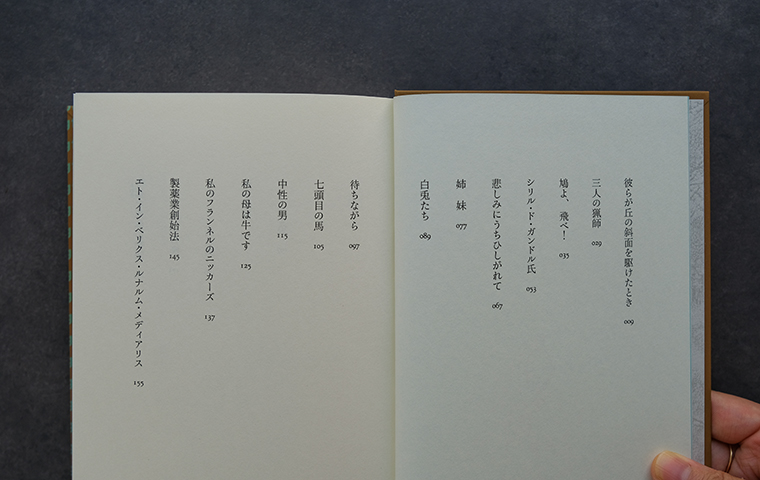 彼らが丘の斜面を駆けたとき 009
三人の猟師 029
鳩よ、飛べ! 035
シリル・ド・ガンドル氏 053
悲しみにうちひしがれて 067
姉妹 077
白兎たち 089
待ちながら 097
七頭目の馬 105
中性の男 115
私の母は牛です 125
私のフランネルのニッカーズ 137
製薬業創始法 145
エト・イン・ベリクス・ルナルム・メディアリス 155